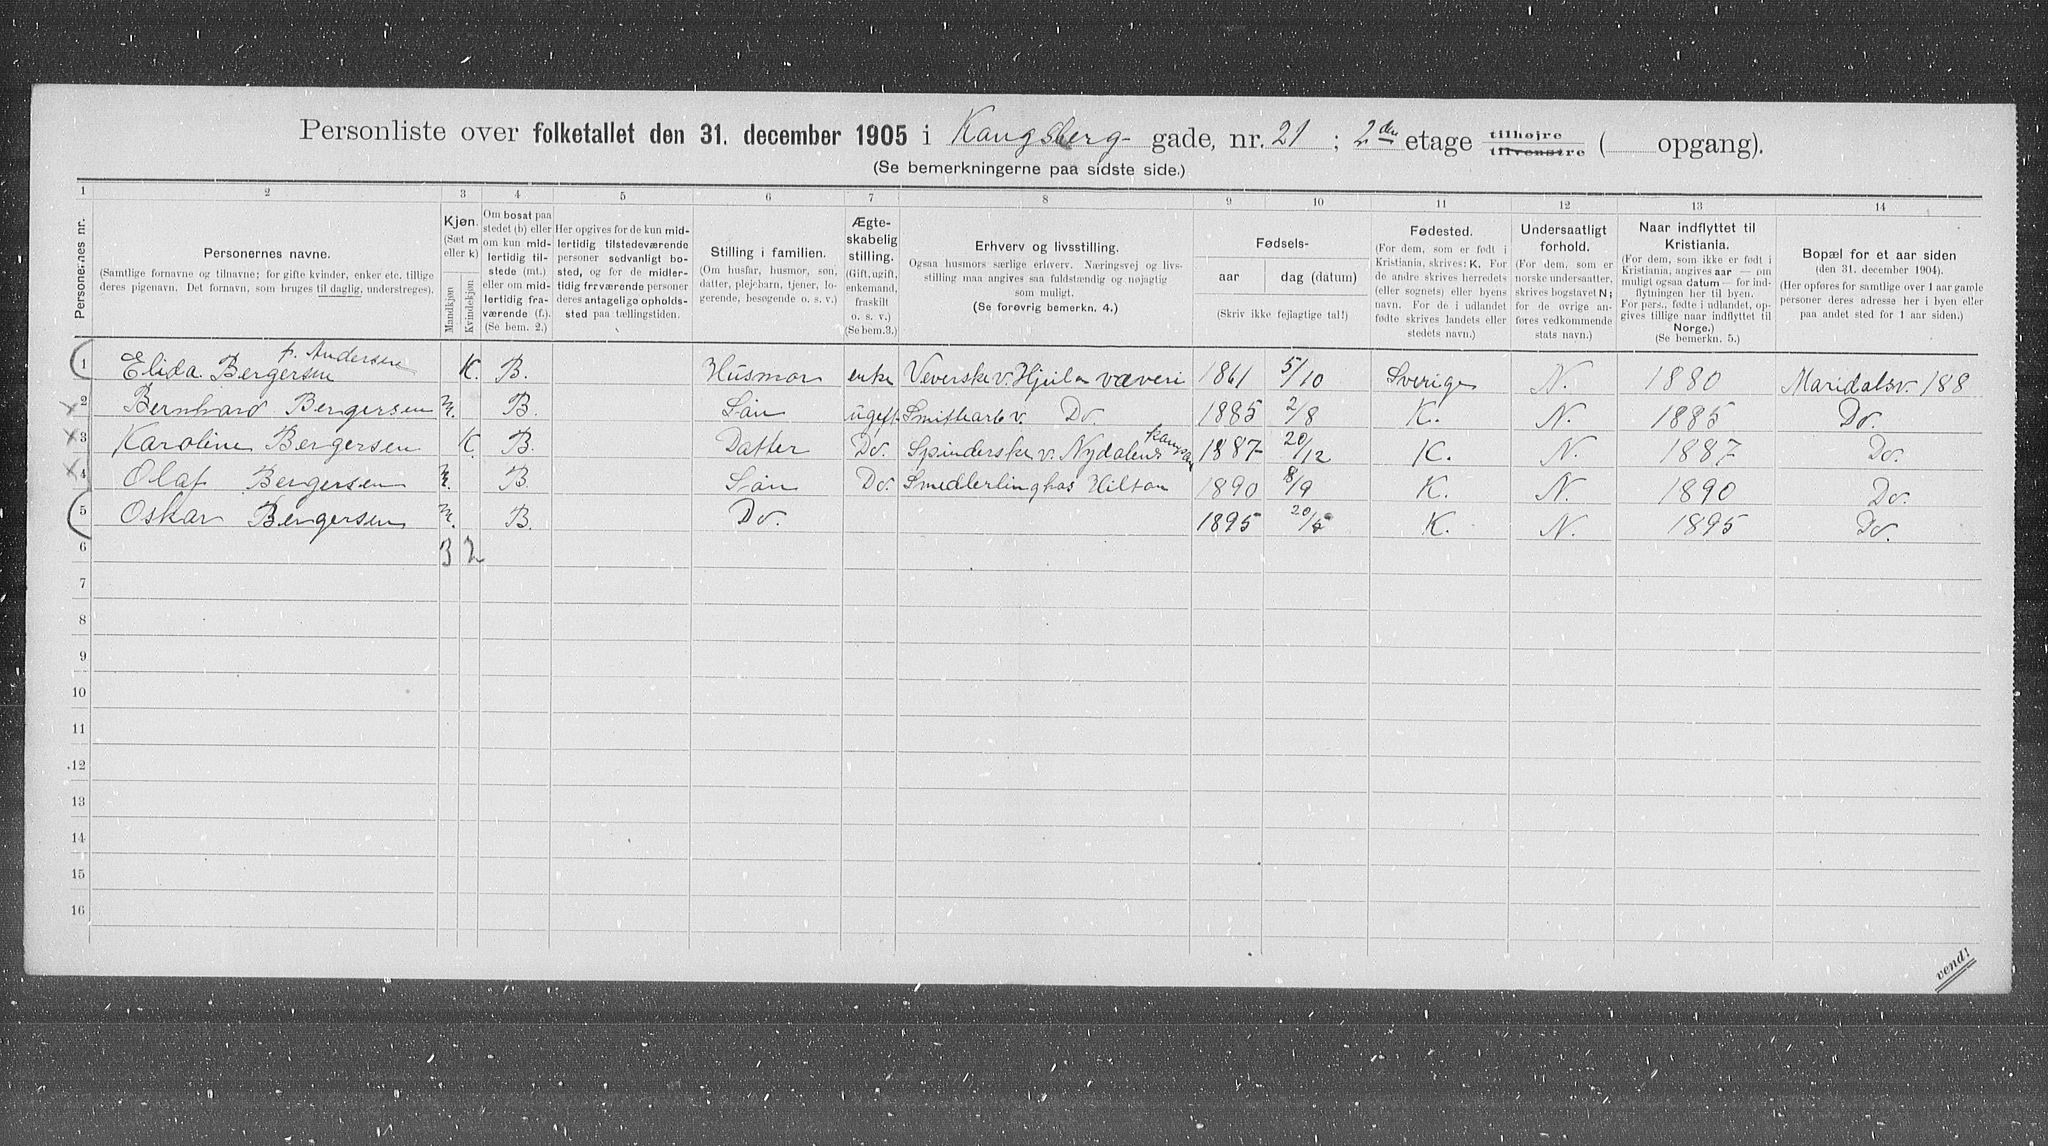 Personliste over folketallet den 31. december 1905 i Kongsberg- gade, nr. 21 ; 2den etage tilhøjre tilvenstre ( opgang).
(Se bemerkningerne paa sidste side.)
1 2 3 4 5 6 7 8 9 10 11 12 13 14
Personernes nr.
Personernes navne.
(Samtlige fornavne og tilnavne; for gifte kvinder, enker etc. tillige deres pigenavn. Det fornavn, som bruges til daglig, understreges).
Kjøn.
(Sæt m eller k)
Mandkjøn
Kvindekjøn.
Om bosat paa stedet (b) eller om kun midlertidig tilstede (mt.) eller om midlertidig fraværende (f.). (Se bem. 2.)
Her opgives for de kun midlertidig tilstedeværende personer sedvanligt bosted, og for de midlertidig frrværende personer deres antagelige opholdssted paa tællingstiden.
Stilling i familien.
(Om husfar, husmor, søn, datter, plejebarn, tjener, logerende, besøgende o. s. v.)
Ægteskabelig stilling.
(Gift, ugift, enkemand, fraskilt o. s. v.)
(Se bem. 3.)
Erhverv og livsstilling.
Ogsaa husmors særlige erhlerv. Næringsvej og livsstilling maa angives saa fuldstændig og nøjagtig som muligt.
(Se forøvrig bemerkn. 4.)
Fødsels-
aar dag (datum)
(Skriv ikke fejlagtige tal!)
Fødested.
(For dem, som er født i Kristiania, skrives: K. For de andre skrives herredets (eller sognets) eller byens navn. For de i udlandet fødte skrives landets eller stedets navn.)
Undersaatligt forhold.
(For dem, som er norske undersaatter, skrives bogstavet N; for de øvrige anføres vedkommende stats navn.)
Naar indflyttet til Kristiania.
(For dem, som ikke er født i Kristiania, angives aar — om muligt ogsaa datum — for indflytningen her til byen. For pers., fødte i udlandet, opgives tillige naar indflyttet til Norge.)
(Se bemerkn. 5.)
Bopæl for et aar siden
(den 31. december 1904).
(Her opføres for samtlige over 1 aar gamle personer deres adresse her i byen eller paa andet sted for 1 aar siden.)
p. Andersen
1 Elida Bergersen K. B. Husmor enke Veverske v. Hjula væveri 1861 5/10 Sverige N. 1880 Maridalsv. 188
2 Bernhard Bergersen m. B. Søn ugift Smistarb v. Do. 1885 2/8 K. N. 1885 Do.
3 Karoline Bergersen K. B. Datter Do. Spinderske v. Nydalens 1887 20/12 K. N. 1887 Do.
4 Olaf Bergersen m. B Søn Do. Smedlerling hos Hilton 1890 8/9 K. N. 1890 Do.
5 Oskar Bergersen m. B. Do. 1895 20/5 K. N. 1895 Do.
6 3 2
7
8
9
10
11
12
13
14
15
16
vend!